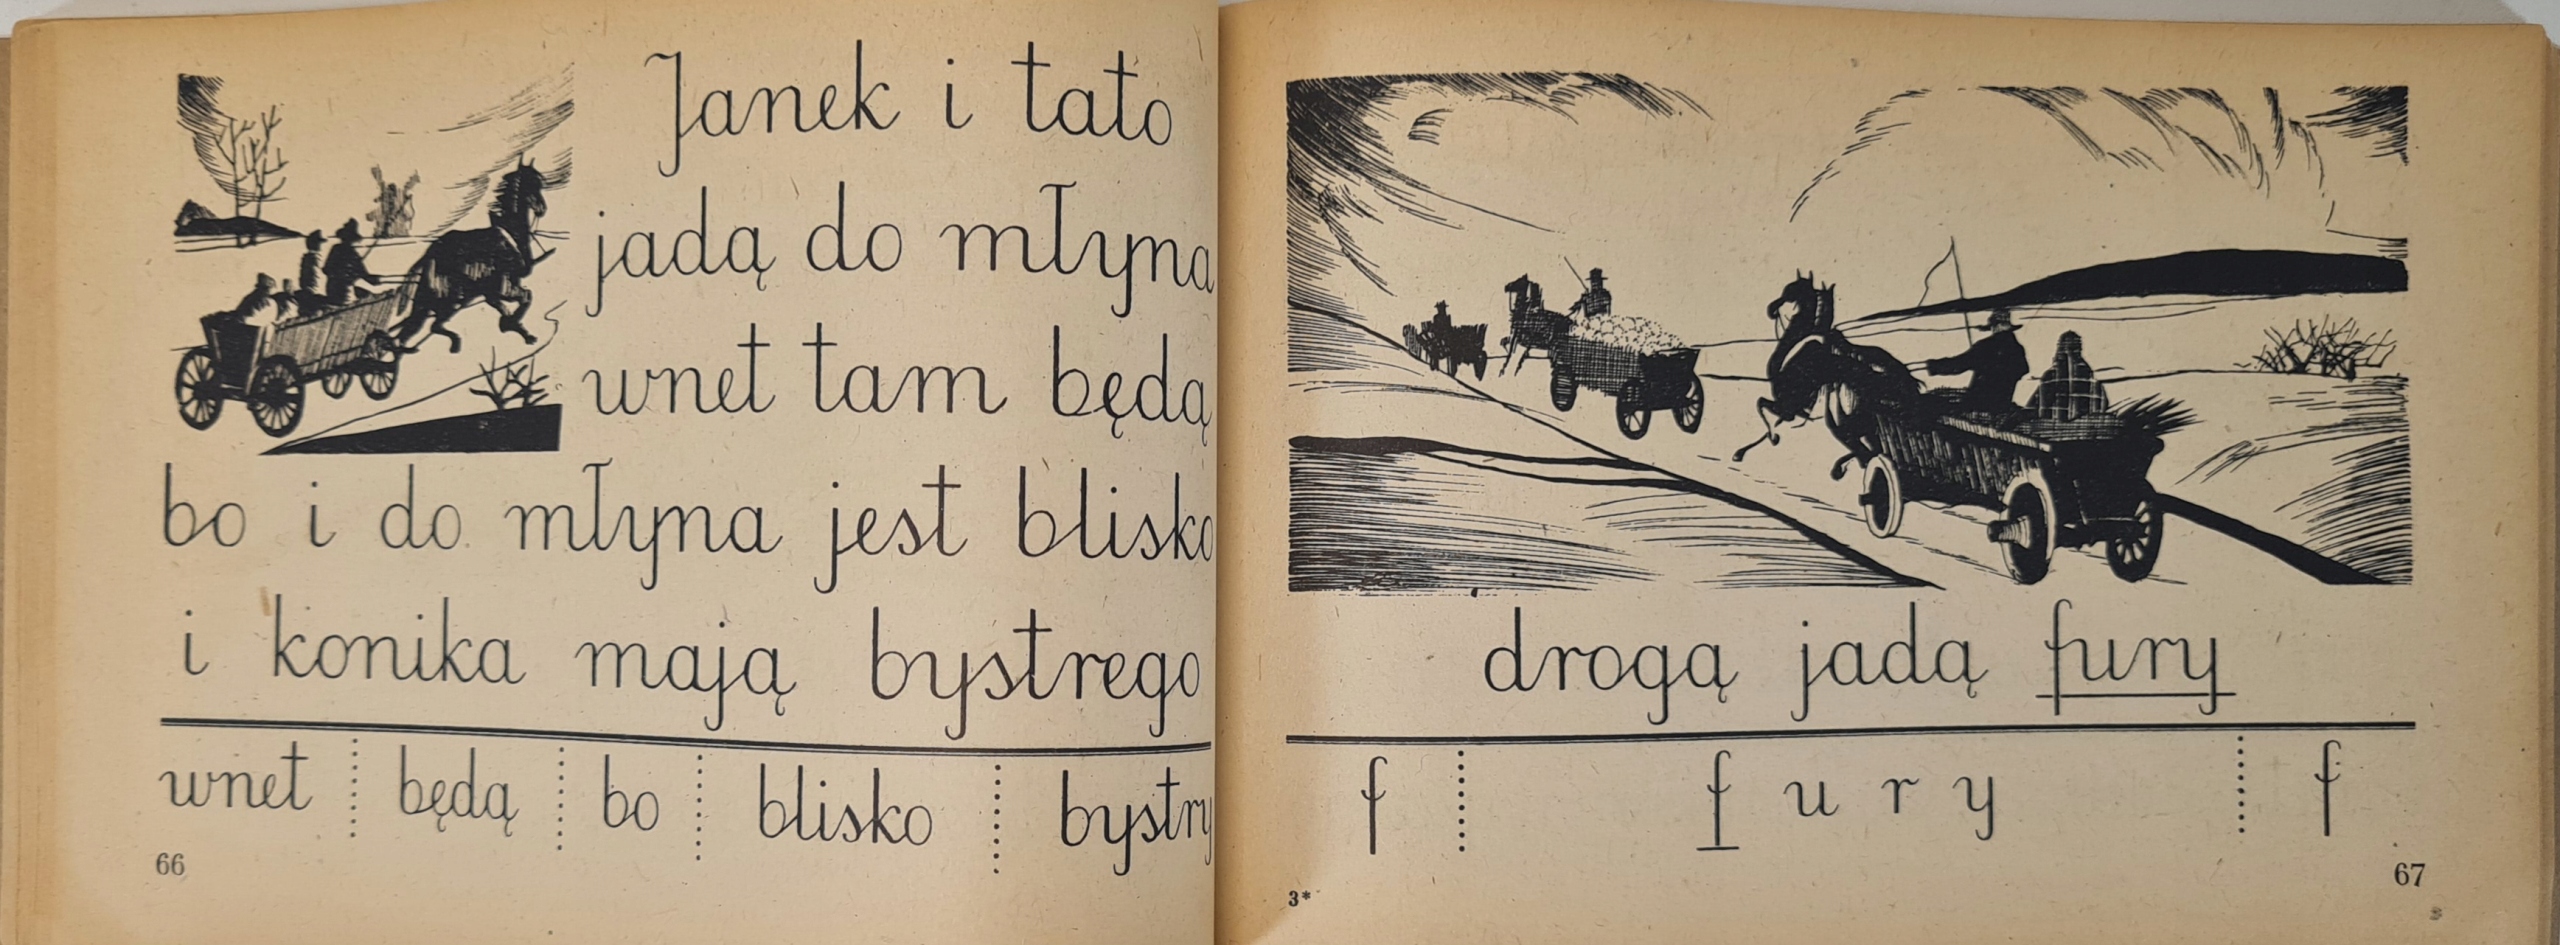 Janek i tato
jadą do młyna
wnet tam będą
bo i do młyna jest blisko
i konika mają bystrego
wnet będą bo blisko bystry
66
drogą jadą fury
f f u r y f
67
3*